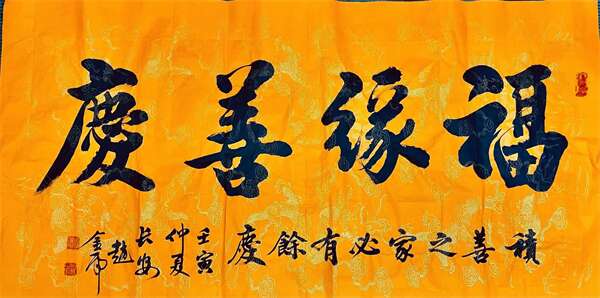 福緣善慶
積善之家必有餘慶
壬寅
仲夏
長安
趙
金虎